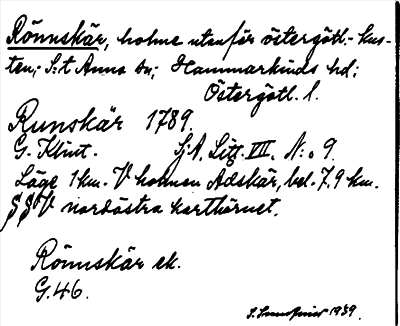 Rönnskär, holme utanför östergötl.-kus-
ten; S:t Anna sn; Hammarkinds hd;
Östergötl. l.
Runskär 1789.
G. Klint. Sj.A. Litg. VII. N:o 9.
Läge 1 km. V holmen Adskär, bel. 7.9 km.
SSV nordöstra karthörnet.
Rönnskär ek.
G.46.
1939.